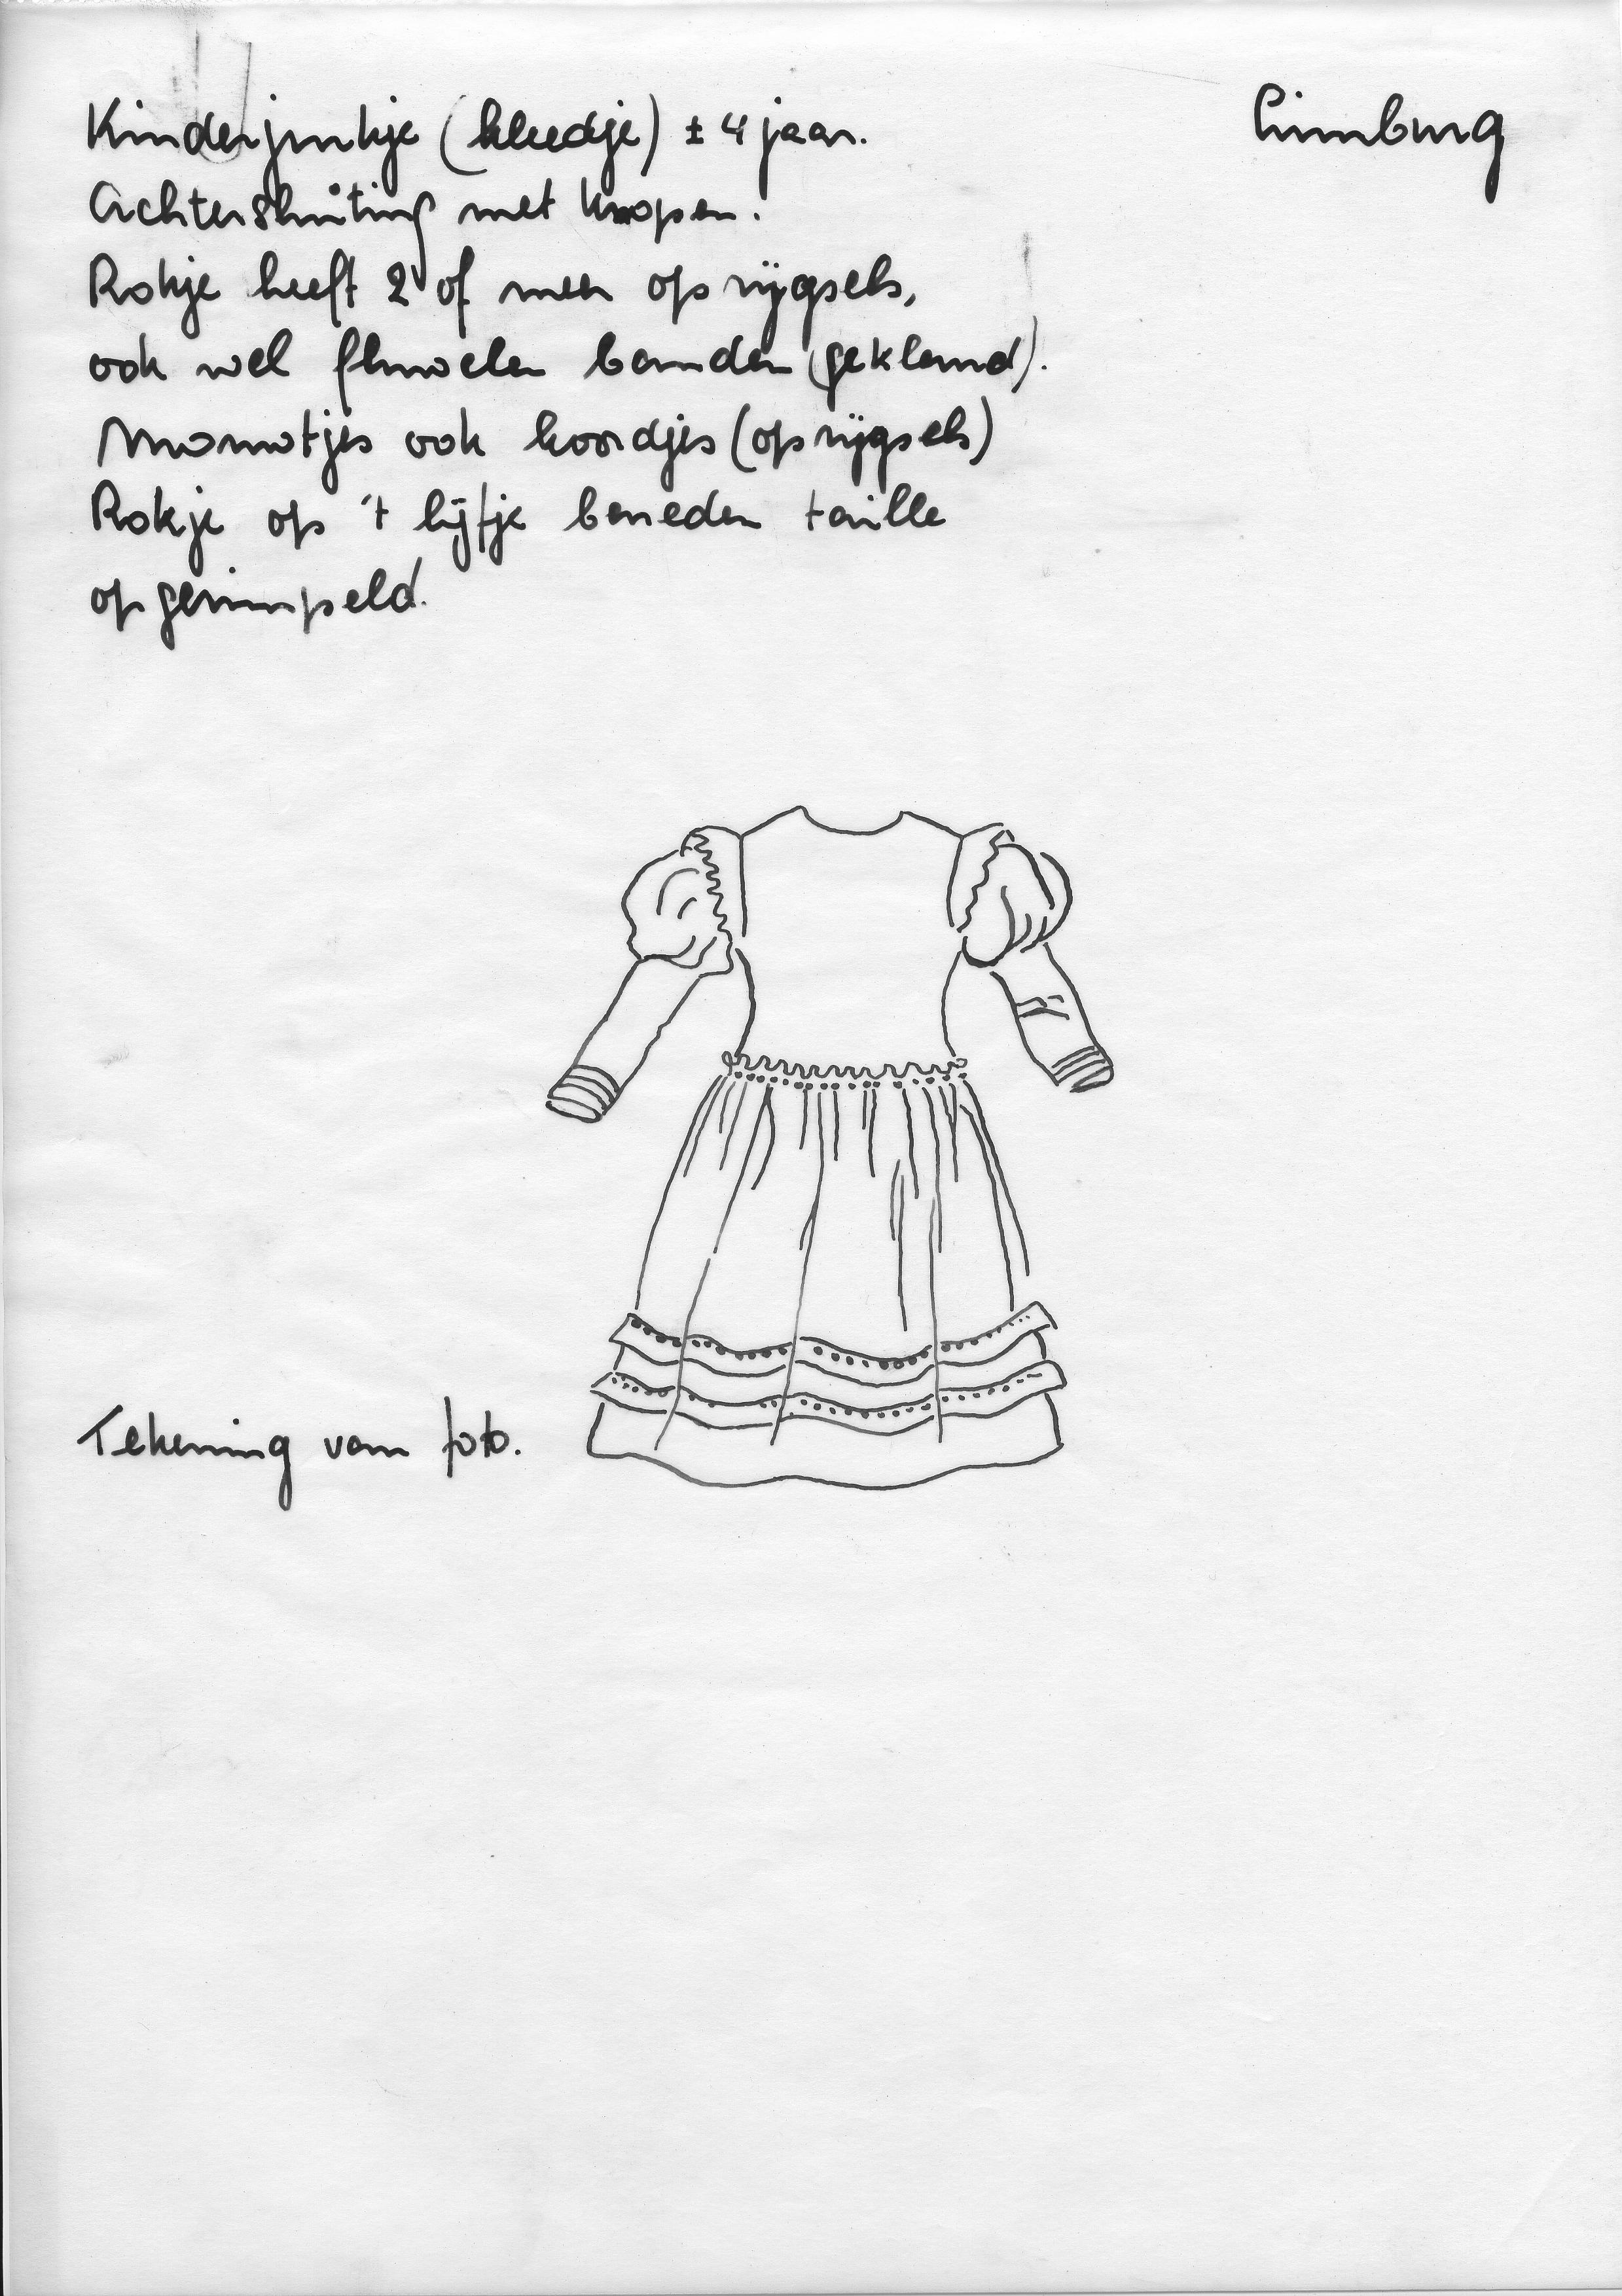 Kinderjurkje (kleedje) ± 4 jaar.
Limburg
Achtersluiting met knopen.
Rokje heeft 2 of meer oprijgsels,
ook wel fluwelen banden (gekleurd).
Mouwtjes ook koordjes (oprijgsels)
Rokje op 't lijfje beneden taille
opgerimpeld.
Tekening van foto.